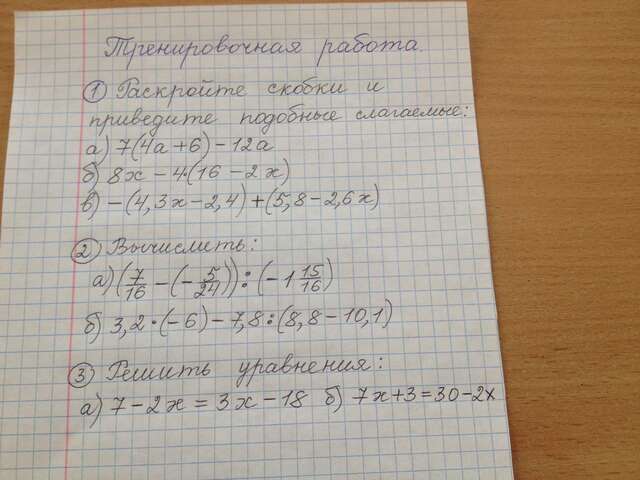 Тренировочная работа.
① Раскройте скобки и
приведите подобные слагаемые:
а) 7(4а+6)-12а
б) 8х - 4·(16 - 2х)
в) -(4,3х-2,4)+(5,8-2,6х)
② Вычислить:
а) (7/16 - (-5/24)) : (-1 15/16)
б) 3,2·(-6)-7,8:(8,8-10,1)
③ Решить уравнения:
а) 7-2х = 3х-18 б) 7х+3=30-2х